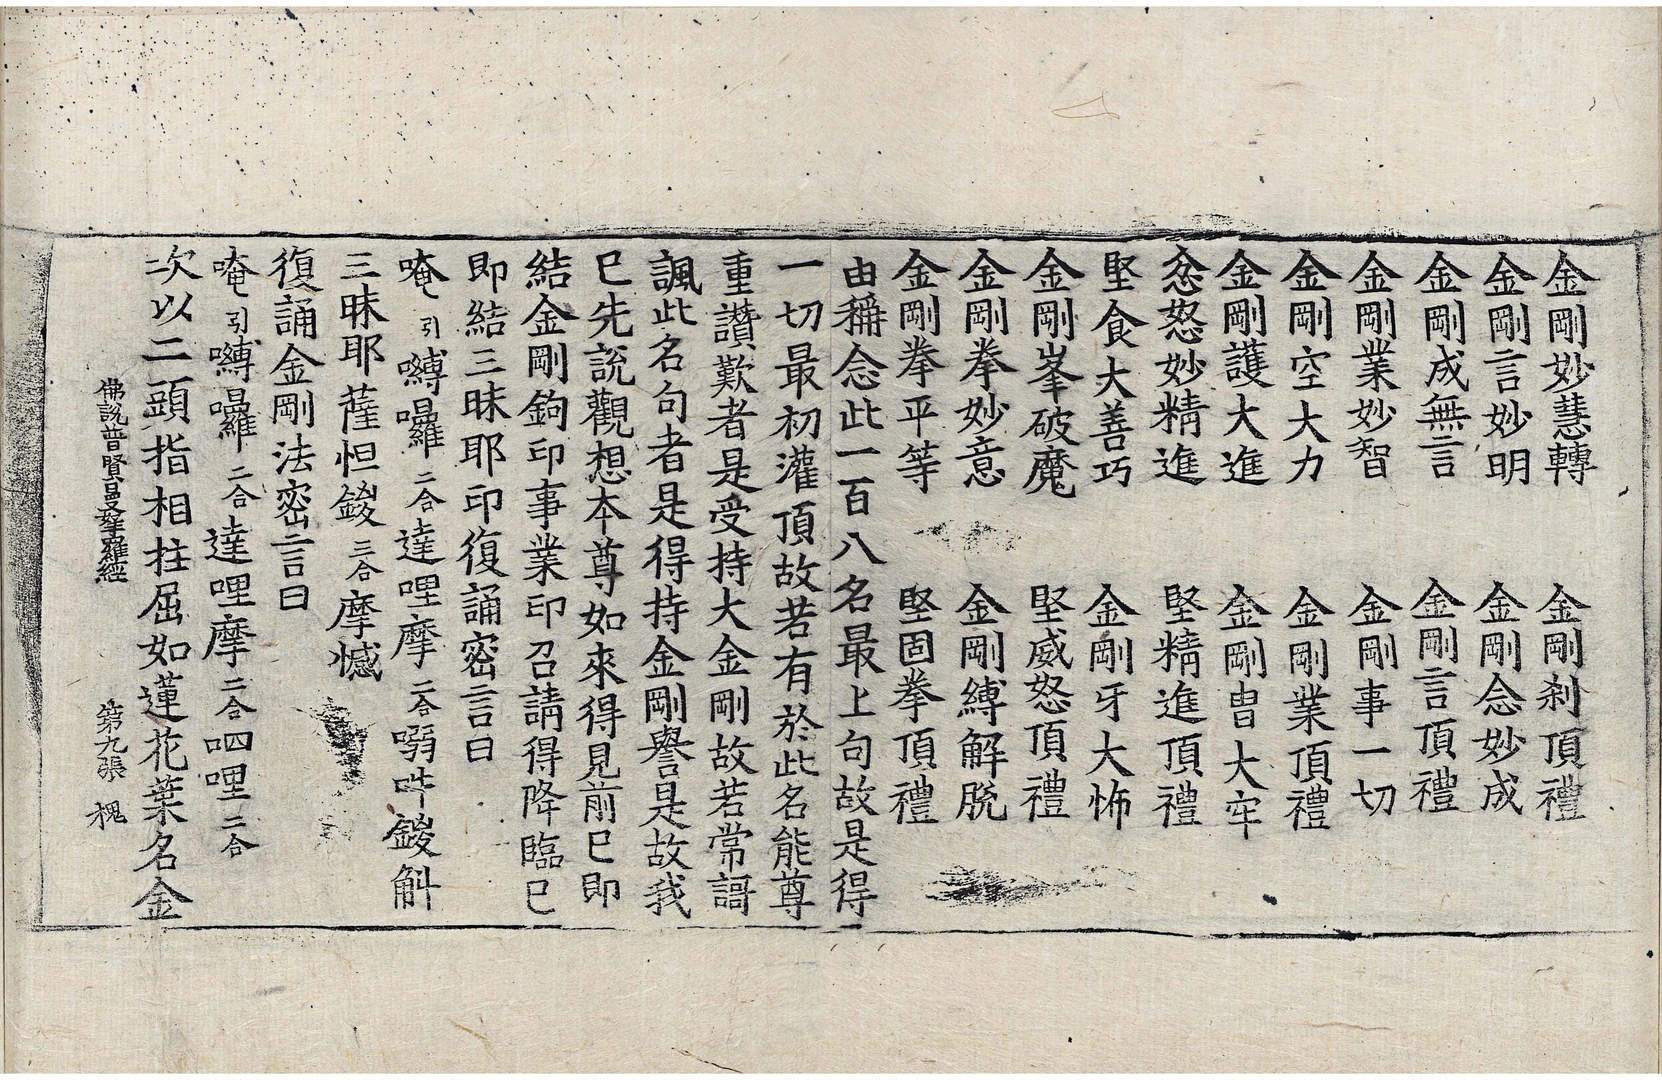 金剛妙慧轉　金剛刹頂禮
金剛言妙明　金剛念妙成
金剛成無言　金剛言頂禮
金剛業妙智　金剛事一切
金剛空大力　金剛業頂禮
金剛護大進　金剛冑大牢
忿怒妙精進　堅精進頂禮
堅食大善巧　金剛牙大怖
金剛峯破魔　堅威怒頂禮
金剛拳妙意　金剛縛解脫
金剛拳平等　堅固拳頂禮
由稱念此一百八名最上句故是得
一切最初灌頂故若有於此名能尊
重讚歎者是受持大金剛故若常謌
諷此名句者是得持金剛譽是故我
已先說觀想本尊如來得見前已即
結金剛鉤印事業印召請得降臨已
即結三昧耶印復誦密言曰
唵引嚩囉二合達哩摩二合嘮吽鍐斛
三昧耶薩怛鍐三合摩憾
復誦金剛法密言曰
唵引嚩囉二合達哩摩二合呬哩二合
次以二頭指相拄屈如蓮花葉名金
佛說普賢曼拏羅經　第九張　槐